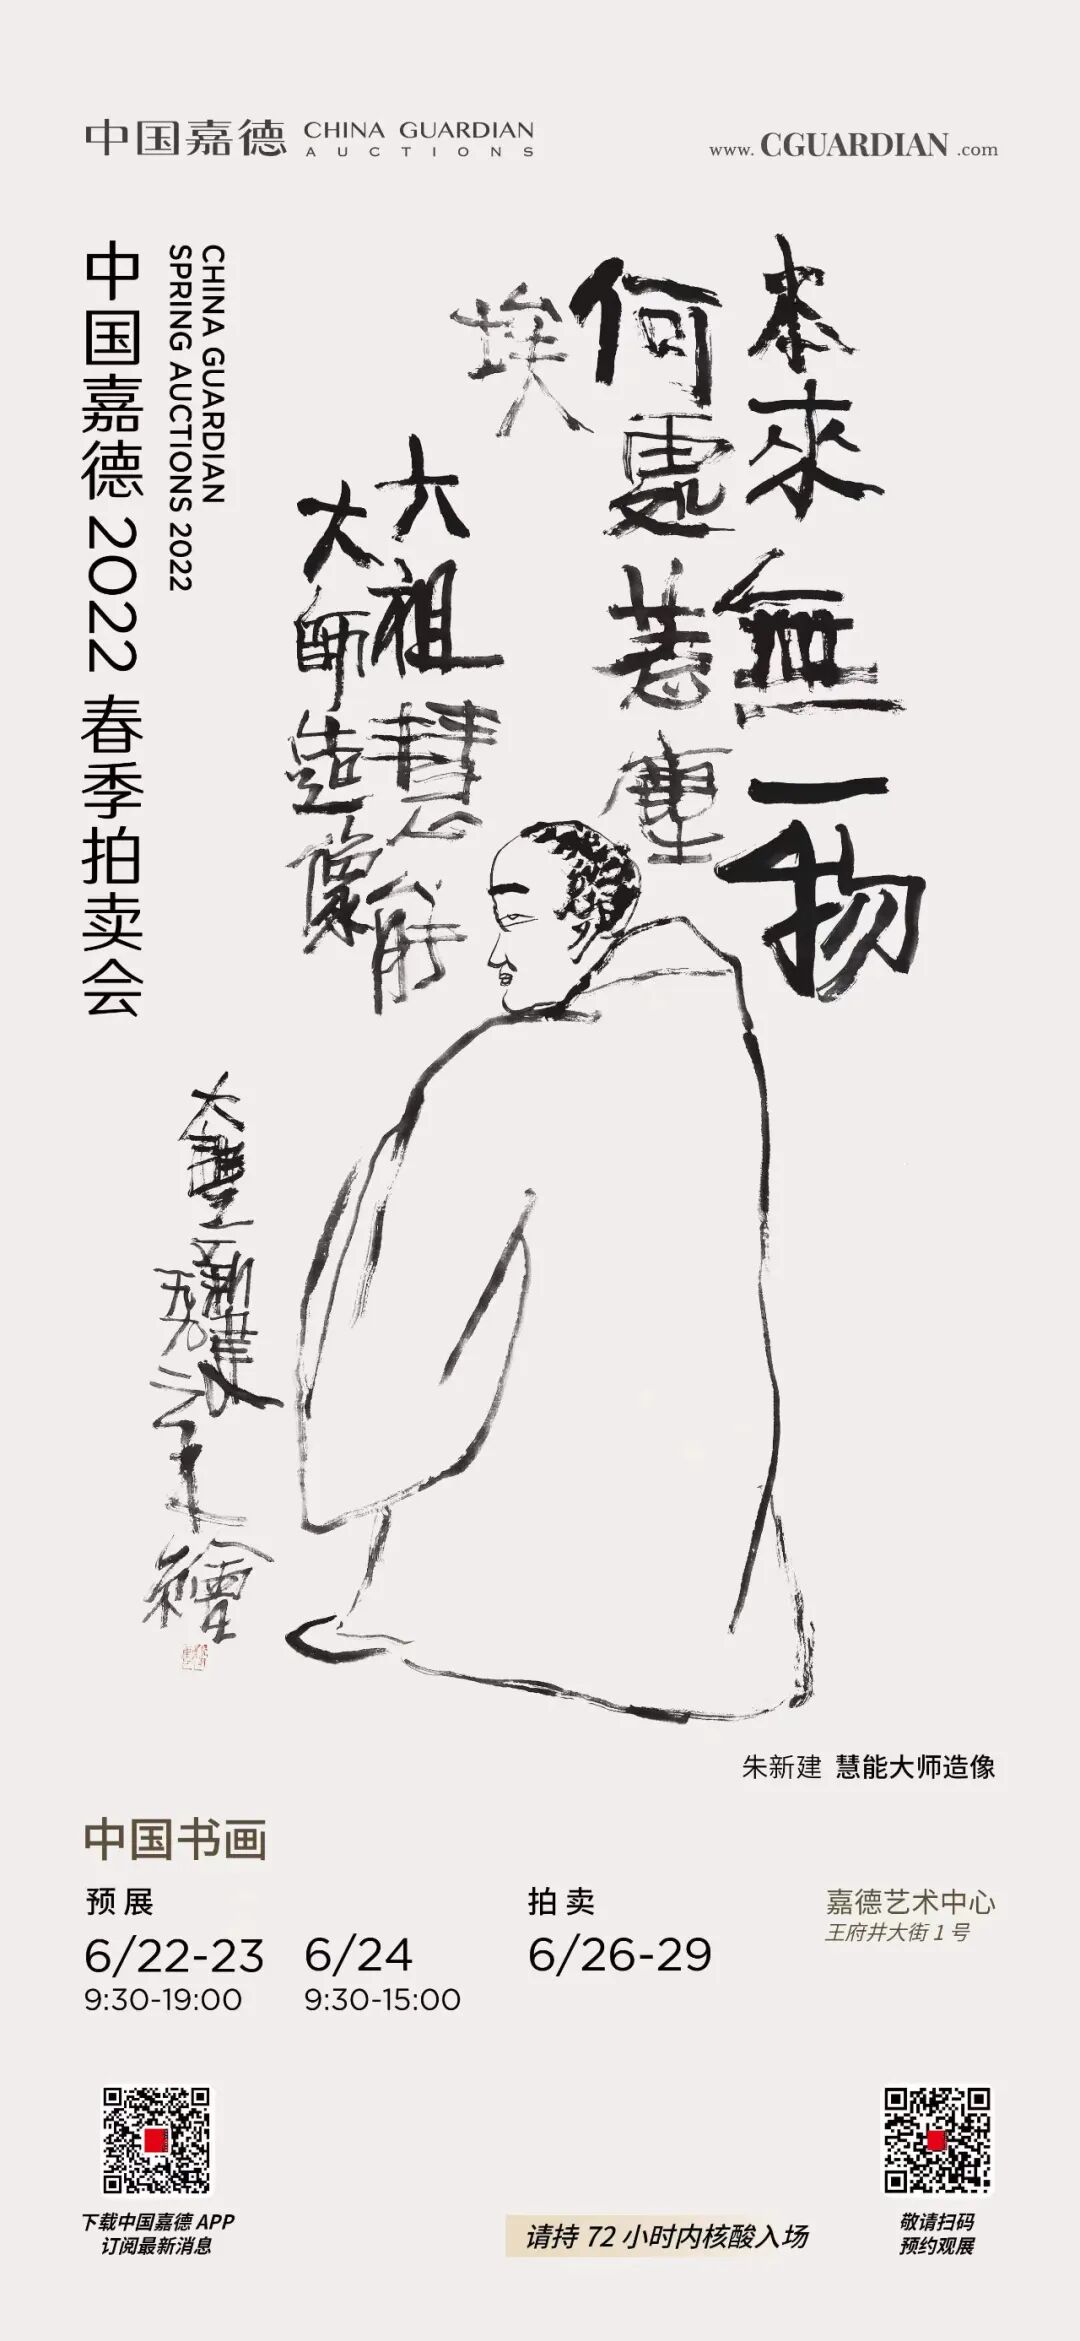 中国嘉德 CHINA GUARDIAN
AUCTIONS
www.CGUARDIAN.com
中国嘉德2022春季拍卖会
CHINA GUARDIAN
SPRING AUCTIONS 2022
本來無一物
何處惹塵
埃
六祖慧能
大師造像
大豐新建
繪
朱新建 慧能大师造像
中国书画
预展
6/22-23
9:30-19:00
6/24
9:30-15:00
拍卖
6/26-29
嘉德艺术中心
王府井大街1号
下载中国嘉德APP
订阅最新消息
请持72小时内核酸入场
敬请扫码
预约观展